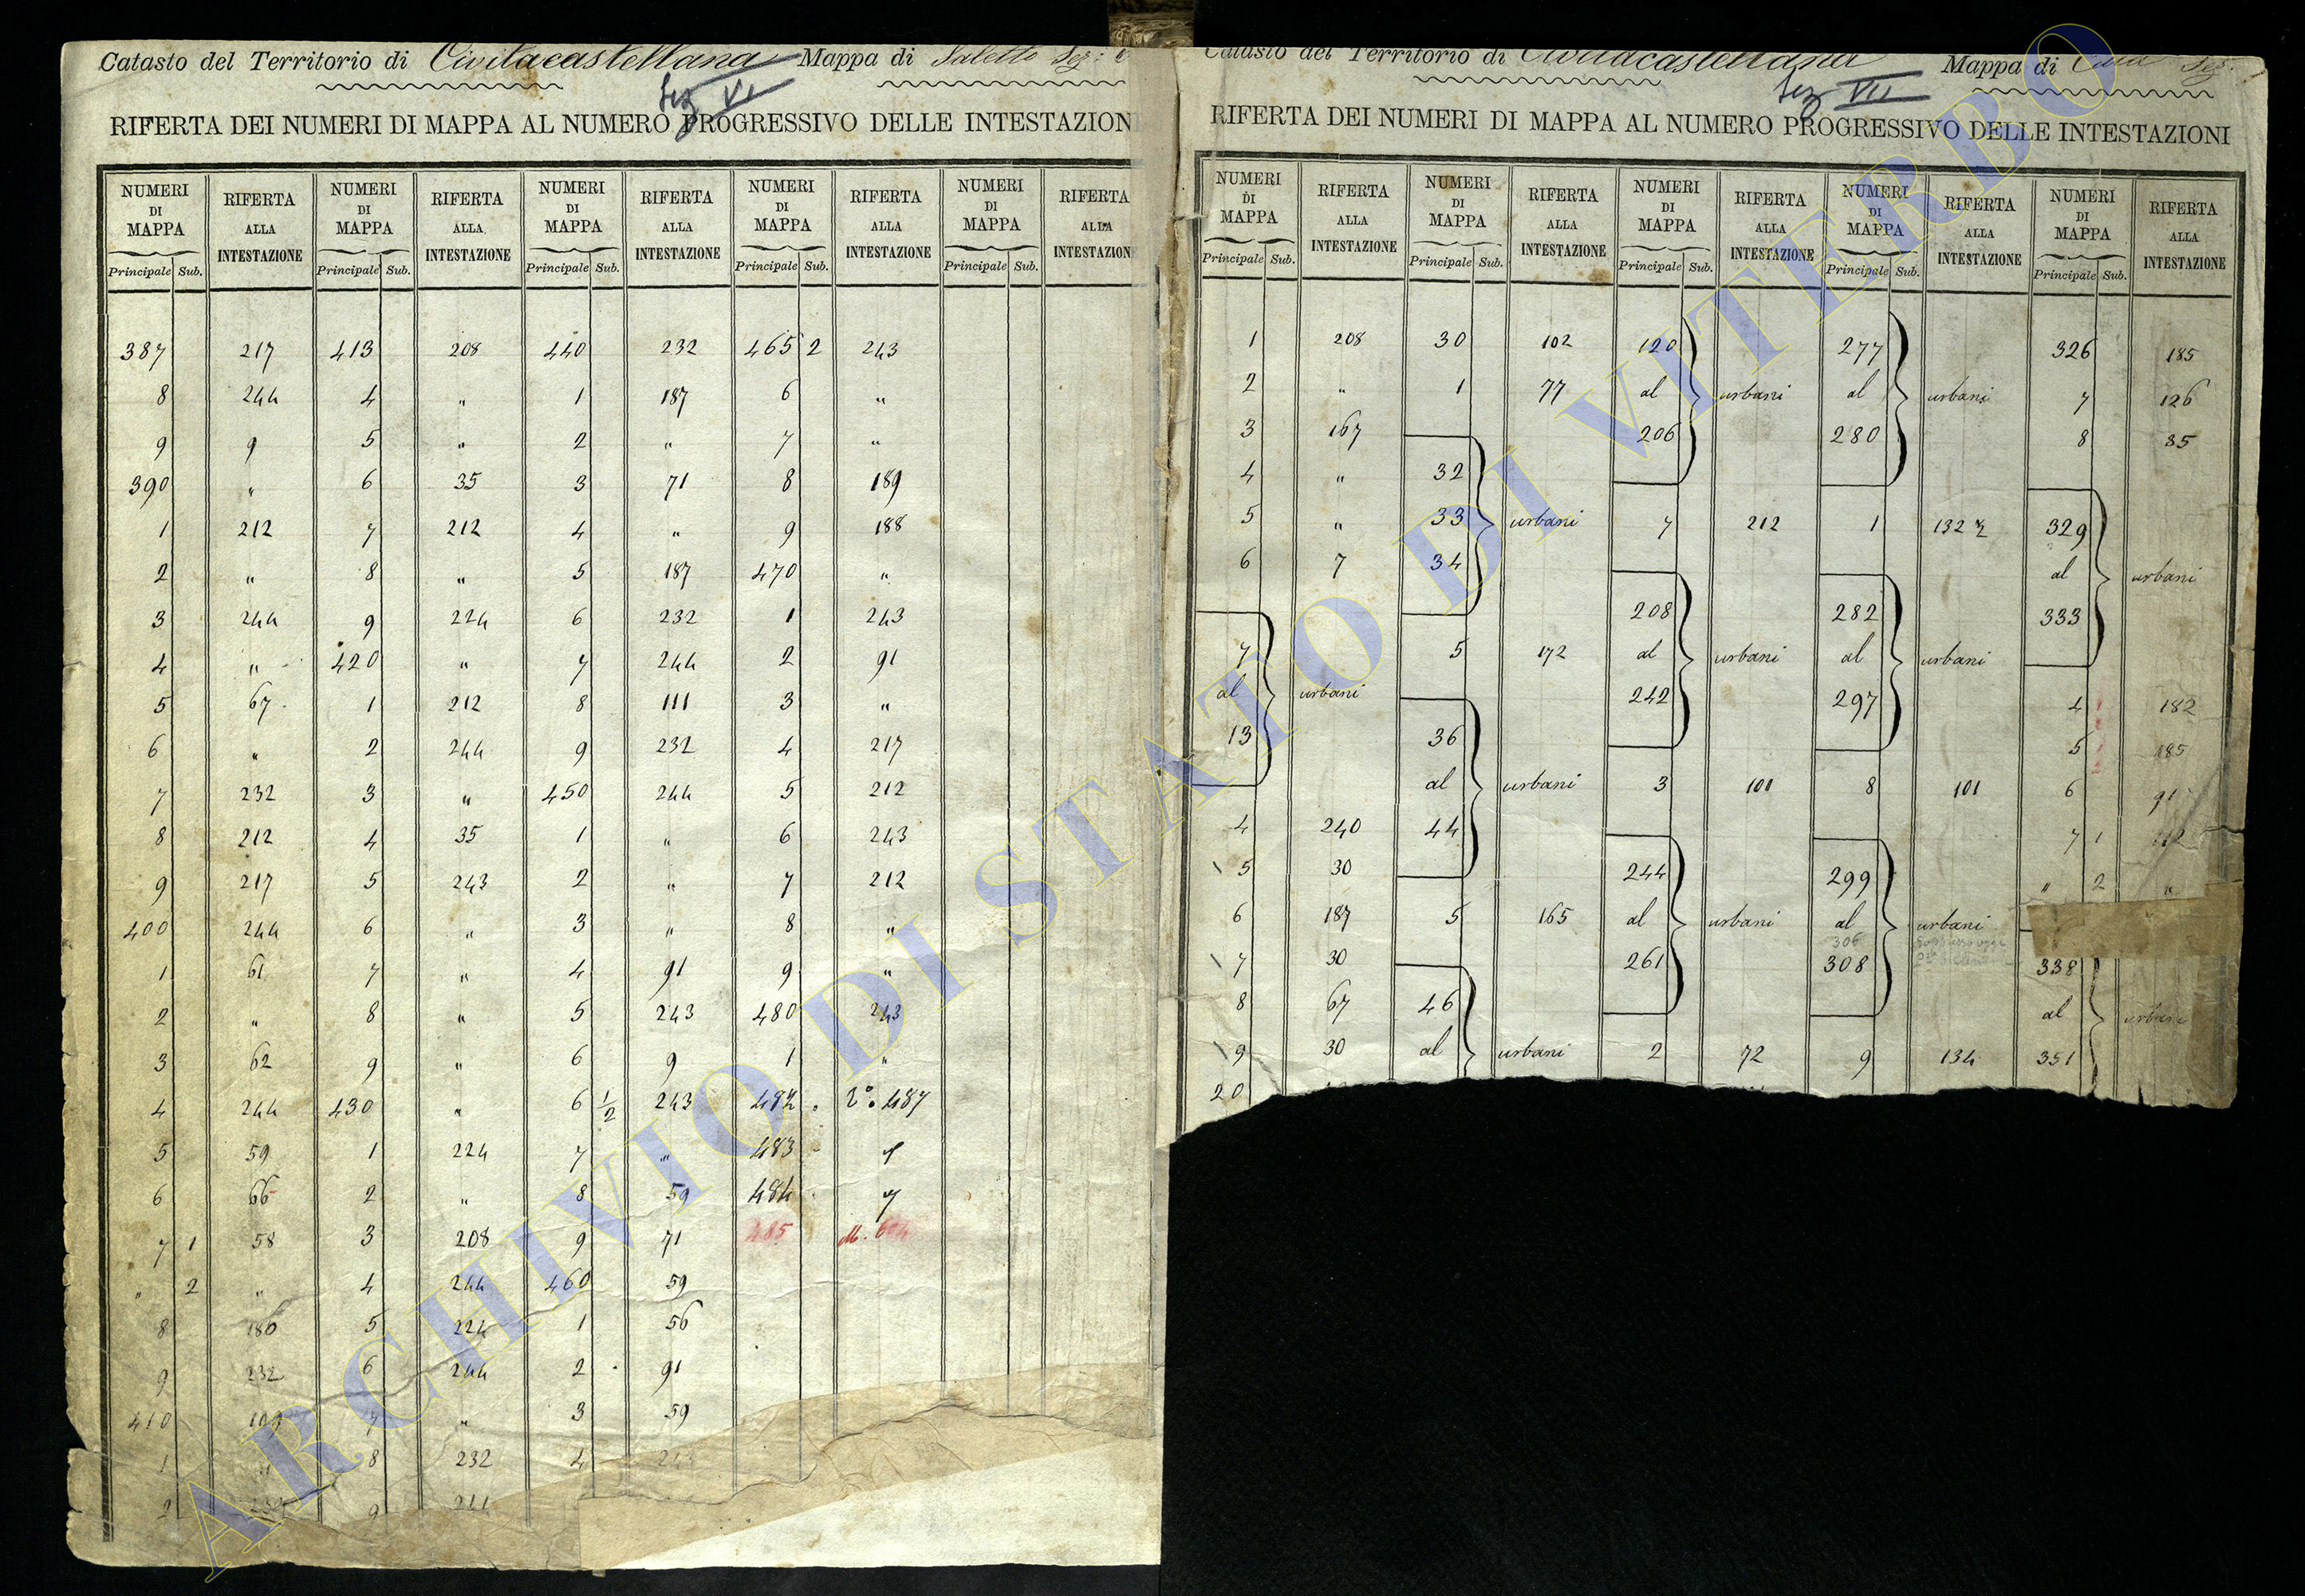 Catasto del Territorio di Civitacastellana Mappa di Saletto Sez:
Sez VI
RIFERTA DEI NUMERI DI MAPPA AL NUMERO PROGRESSIVO DELLE INTESTAZION
NUMERI RIFERTA NUMERI RIFERTA NUMERI RIFERTA NUMERI RIFERTA NUMERI RIFERTA
DI ALLA DI ALLA DI ALLA DI ALLA DI ALLA
MAPPA INTESTAZIONE MAPPA INTESTAZIONE MAPPA INTESTAZIONE MAPPA INTESTAZIONE MAPPA INTESTAZION
Principale Sub. Principale Sub. Principale Sub. Principale Sub. Principale Sub.
387 217 413 208 440 232 465 2 243
8 244 4 " 1 187 6 "
9 9 5 " 2 " 7 "
390 " 6 35 3 71 8 189
1 212 7 212 4 " 9 188
2 " 8 " 5 187 470 "
3 244 9 224 6 232 1 243
4 " 420 " 7 244 2 91
5 67 1 212 8 111 3 "
6 " 2 244 9 232 4 217
7 232 3 " 450 244 5 212
8 212 4 35 1 " 6 243
9 217 5 243 2 " 7 212
400 244 6 " 3 " 8 "
1 61 7 " 4 91 9 "
2 " 8 " 5 243 480 243
3 62 9 " 6 9 1 "
4 244 430 " 6 1/2 243 482 2° 487
5 59 1 224 7 " 483
6 66 2 " 8 59 484
7 1 58 3 208 9 71 485
" 2 " 4 244 460 59
8 180 5 224 1 56
9 232 6 244 2 91
410 109 7 " 3 59
1 " 8 232 4 243
2 9 244
Catasto del Territorio di Civitacastellana Mappa di Sez.
Sez VII
RIFERTA DEI NUMERI DI MAPPA AL NUMERO PROGRESSIVO DELLE INTESTAZIONI
NUMERI RIFERTA NUMERI RIFERTA NUMERI RIFERTA NUMERI RIFERTA NUMERI RIFERTA
DI ALLA DI ALLA DI ALLA DI ALLA DI ALLA
MAPPA INTESTAZIONE MAPPA INTESTAZIONE MAPPA INTESTAZIONE MAPPA INTESTAZIONE MAPPA INTESTAZIONE
Principale Sub. Principale Sub. Principale Sub. Principale Sub. Principale Sub.
1 208 30 102 120 277 326 185
2 " 1 77 al urbani al urbani 7 126
3 167 206 280 8 35
4 " 32
5 " 33 urbani 7 212 1 132 2 329
6 7 34 al urbani
208 282 333
7 5 172 al urbani al urbani
al urbani 242 297 4 182
13 36 5 185
al urbani 3 101 8 101 6 91
4 240 44 7 1 112
5 30 244 299 " 2 "
6 187 5 165 al urbani al urbani
306
7 30 261 308 338
8 67 46 al urbani
9 30 al urbani 2 72 9 134 351
20
ARCHIVIO DI STATO DI VITERBO